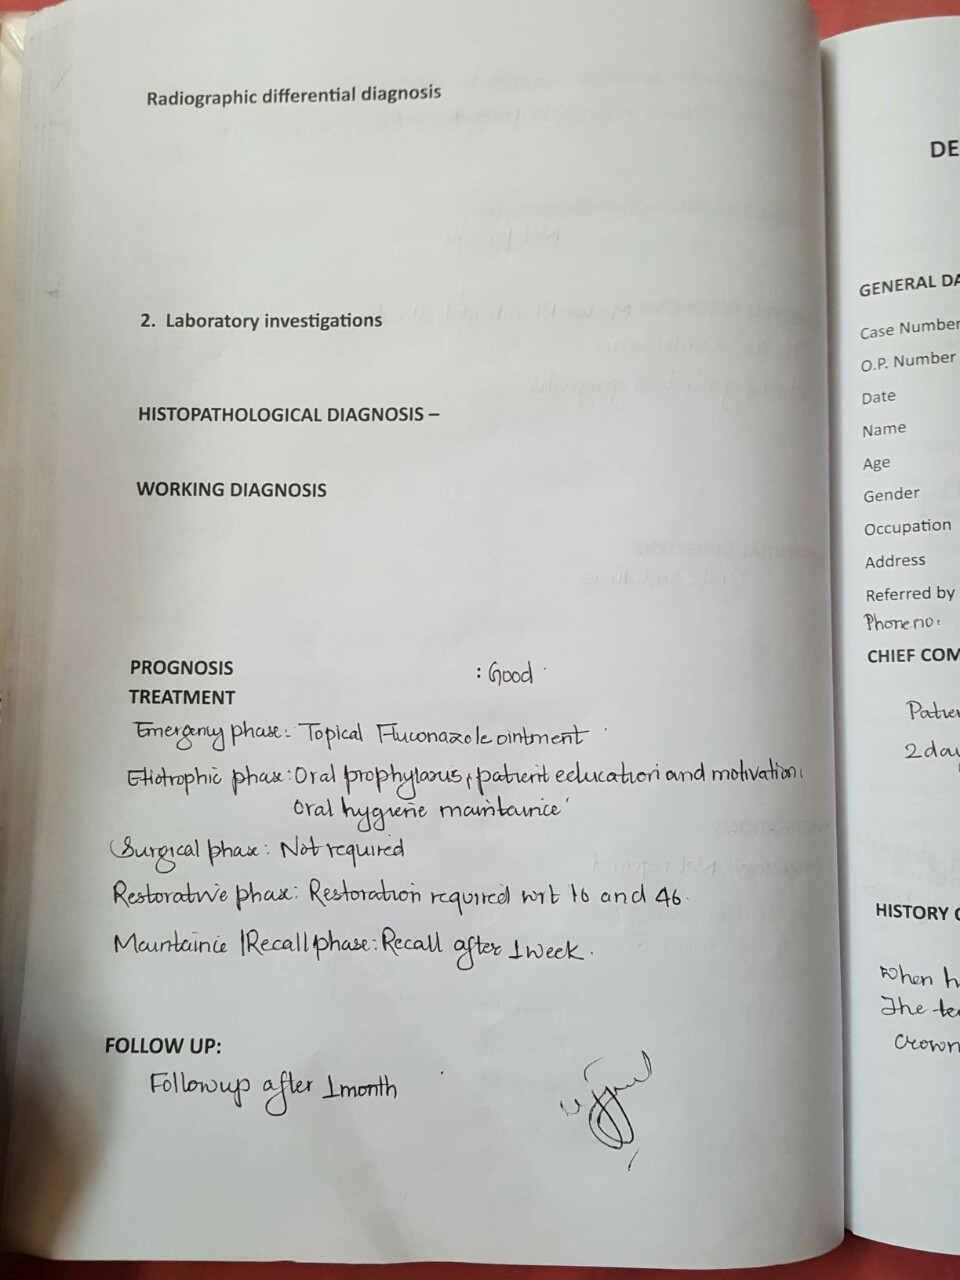 Radiographic differential diagnosis
2. Laboratory investigations
HISTOPATHOLOGICAL DIAGNOSIS –
WORKING DIAGNOSIS
PROGNOSIS : Good
TREATMENT
Emergency phase: Topical Fluconazole ointment
Etiotrophic phase: Oral prophylaxis, patient education and motivation,
Oral hygiene maintaince
Surgical phase: Not required
Restorative phase: Restoration required wrt 16 and 46.
Maintainie /Recall phase: Recall after 1 week.
FOLLOW UP:
Followup after 1 month
DE
GENERAL DA
Case Number
O.P. Number
Date
Name
Age
Gender
Occupation
Address
Referred by
Phone no:
CHIEF COM
Patie
2 day
HISTORY O
When h
The te
Crown